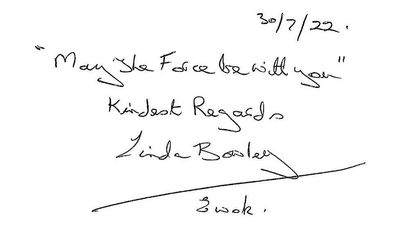 30/7/22.
"May the Force be with you"
Kindest Regards
Linda Bowley
Ewok.